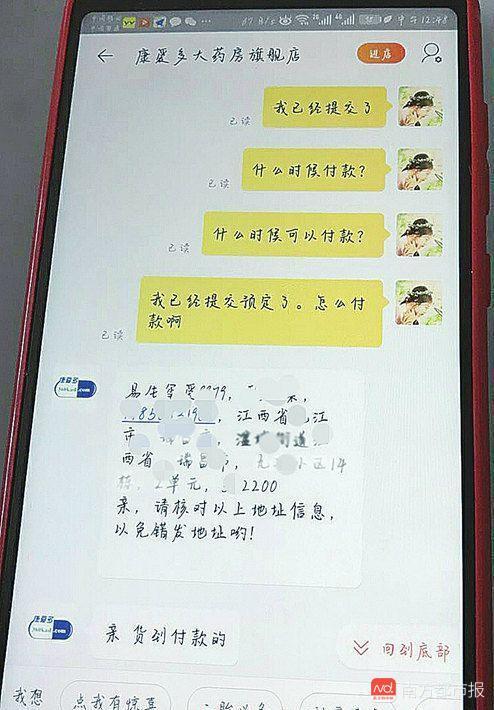 87 B/s
中午12:48
康爱多大药房旗舰店
进店
我已经提交了
已读
什么时候付款?
已读
什么时候可以付款?
已读
我已经提交预定了。怎么付
款啊
已读
康爱多
江西省九江
市
西省 瑞昌市, 小区14
2单元, 2200
亲,请核对以上地址信息,
以免错发地址哟!
康爱多
360kad.com
亲 货到付款的
回到底部
我想
点我有惊喜
南方都市报